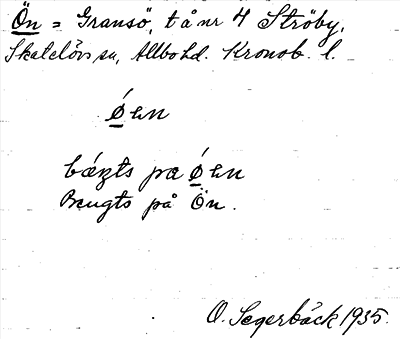 Ön = Gransö, t å nr 4 Ströby,
Skatelövs sn, Allbo hd. Kronob. l.
ǿen
bǽŋts pa ǿen
Bengts på Ön.
O. Segerbäck 1935.